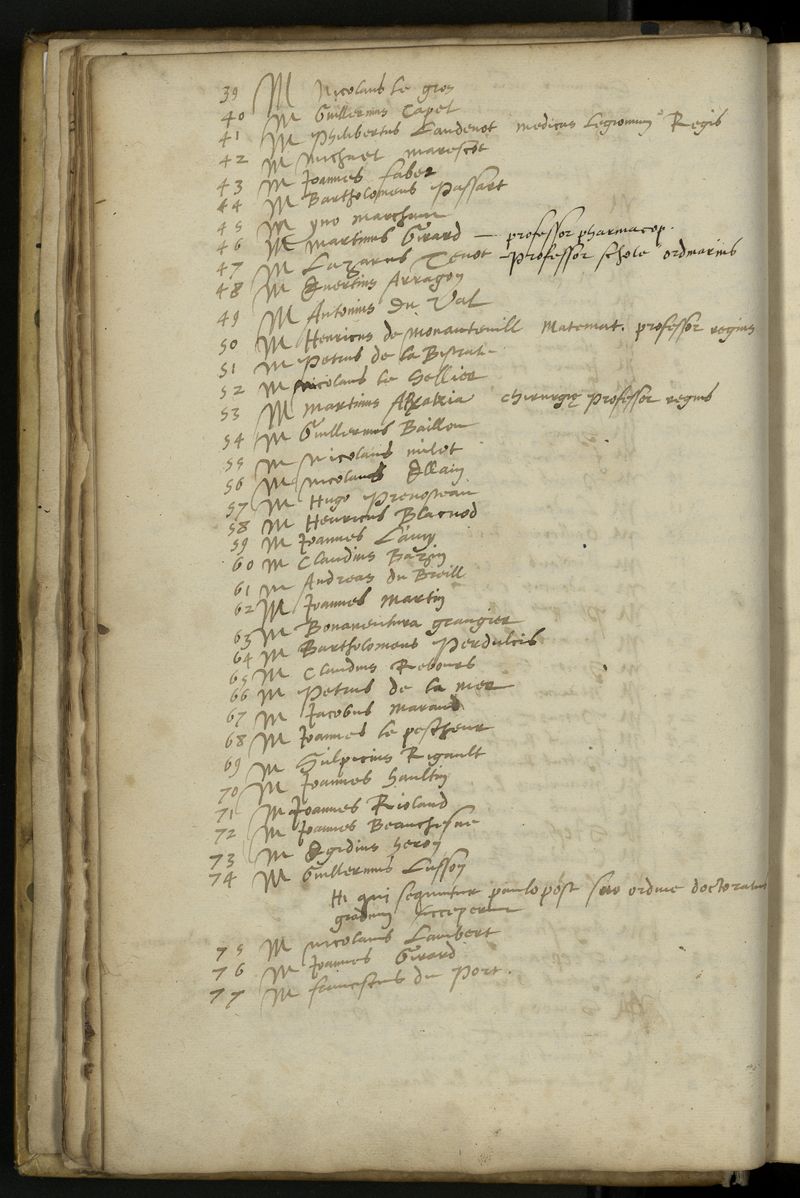 39 M Nicolaus le gros
40 M Guillermus Capel
41 M Philibertus Laudenot medicus Legionum Regis
42 M Michael marescot
43 M Joannes faber
44 M Bartholomeus Passart
45 M yno marchant
46 M martinus Girard — professor pharmacop.
47 M Lazarus Tenot - Professor schole ordinarius
48 M Quertius Arragon
49 M Antonius du Val
50 M Henricus de Monanteuill Matemat. professor regius
51 M Petrus de la Bistrate
52 M Nicolaus le Sellier
53 M martinus Akakia chirurgię professor regius
54 M Guillermus Baillou
55 M Nicolaus milot
56 M Nicolaus Ellain
57 M Hugo Prenosteau
58 M Henricus Blacuod
59 M Joannes Laury
60 M Claudius Bazin
61 M Andreas du Breill
62 M Joannes Martin
63 M Bonaventura grangier
64 M Bartholomeus Perdulcis
65 M Claudius Rebours
66 M Petrus de la mer
67 M Jacobus Marand
68 M Joannes le pescheur
69 M Sulpicius Rigault
70 M Joannes haultin
71 M Joannes Rioland
72 M Joannes Beauchesne
73 M Egidius heron
74 M Guillermus Lusson
Hi qui sequuntur paulo post suo ordine doctoratus
gradum acceperunt
75 M Nicolaus Lambert
76 M Joannes Girard
77 M franciscus du Port.